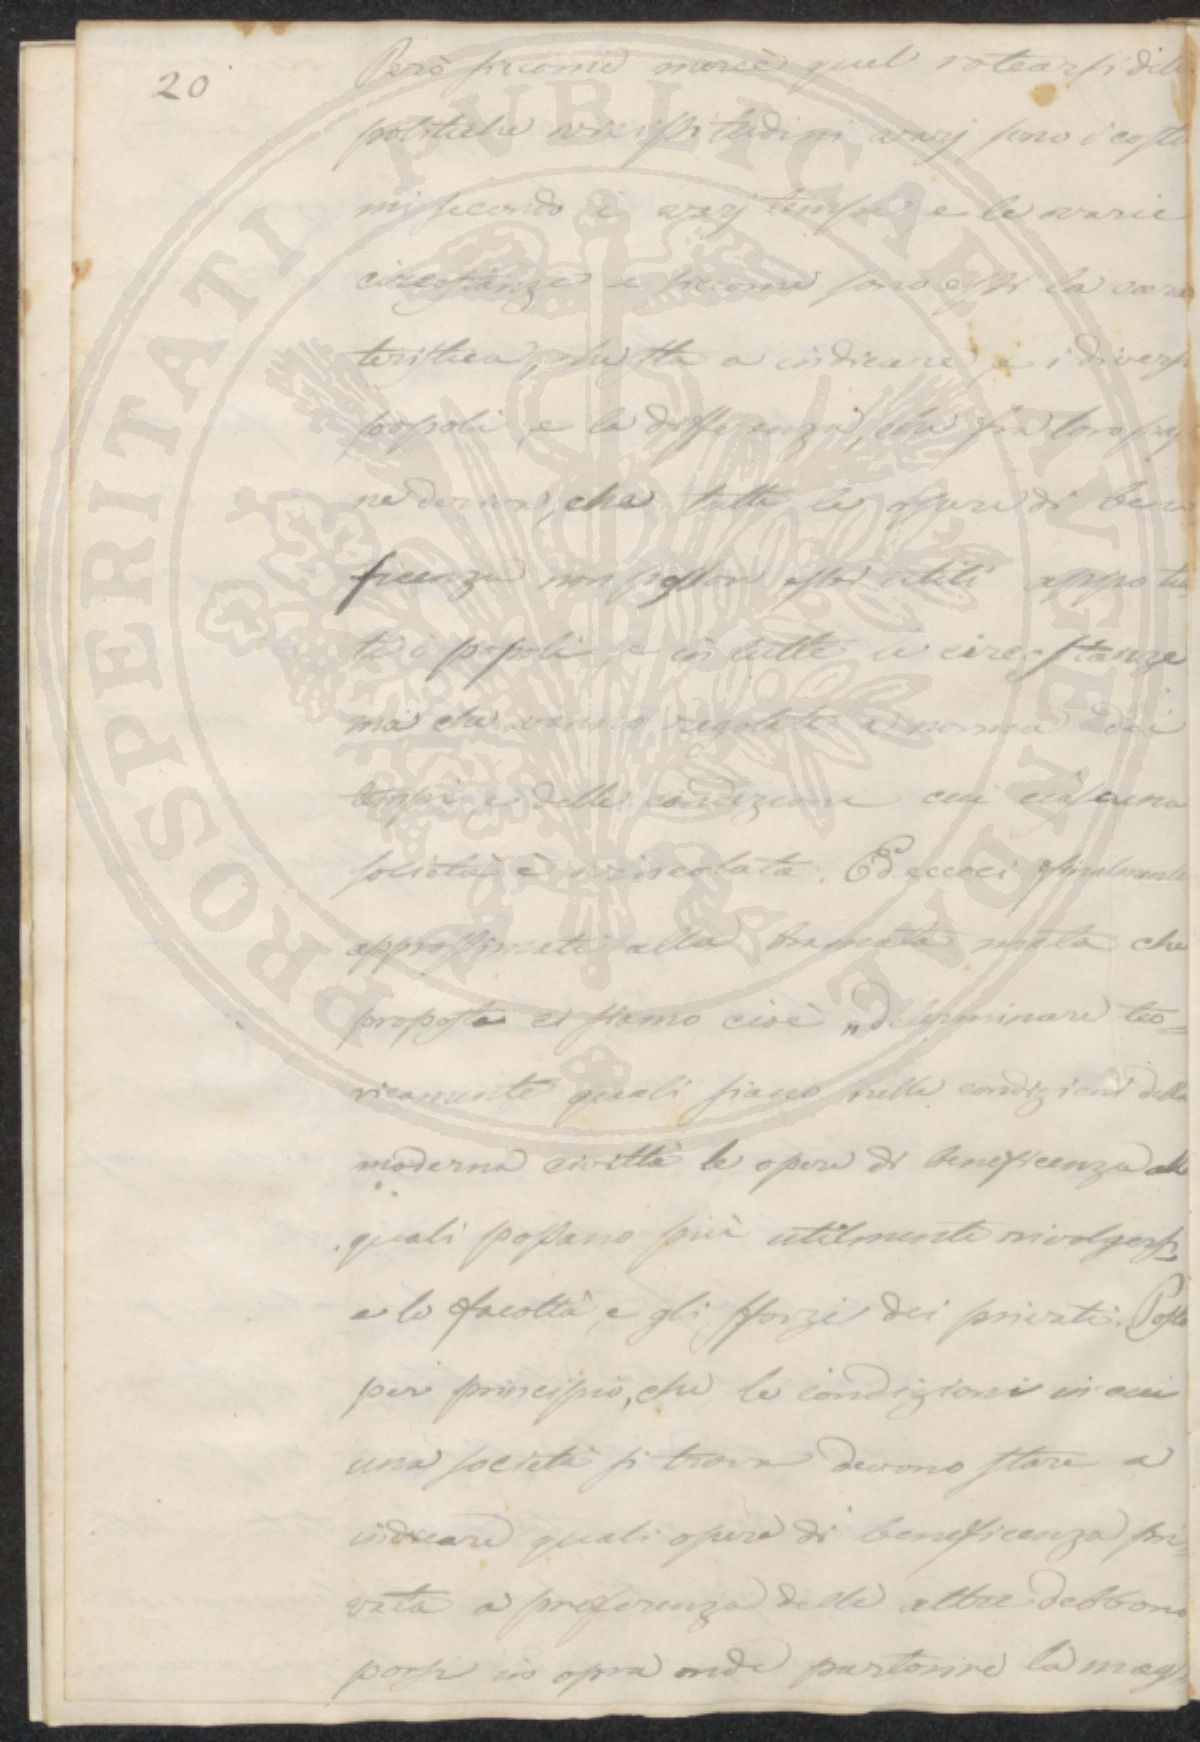 20
Però siccome mercè quel rotearsi delle
politiche vicissitudini varj sono i costu
mi secondo i varj tempi e le varie
circostanze e siccome sono essi la carat
teristica, che sta a indicare e i diversi
popoli e la differenza, che fra loro
ne deriva, che tutte le opere di bene
ficenza non posson esser utili appo tut
ti i popoli e in tutte le circostanze
ma che vanno regolate a norma dei
tempi e delle condizioni cui ciascuna
società è vincolata. Ed eccoci finalmente
approssimati alla bramata meta che
proposta ci siamo cioè „determinare teo=
ricamente quali siano nelle condizioni della
moderna civiltà le opere di beneficenza alle
quali possano più utilmente rivolgersi
e le facoltà e gli sforzi dei privati. Posto
per principio, che le condizioni in cui
una società si trova devono stare a
indicare quali opere di beneficenza pri=
vata a preferenza delle altre debbono
porsi in opra onde partorire la mag=
PROSPERITATI PVBLICAE AVGENDAE